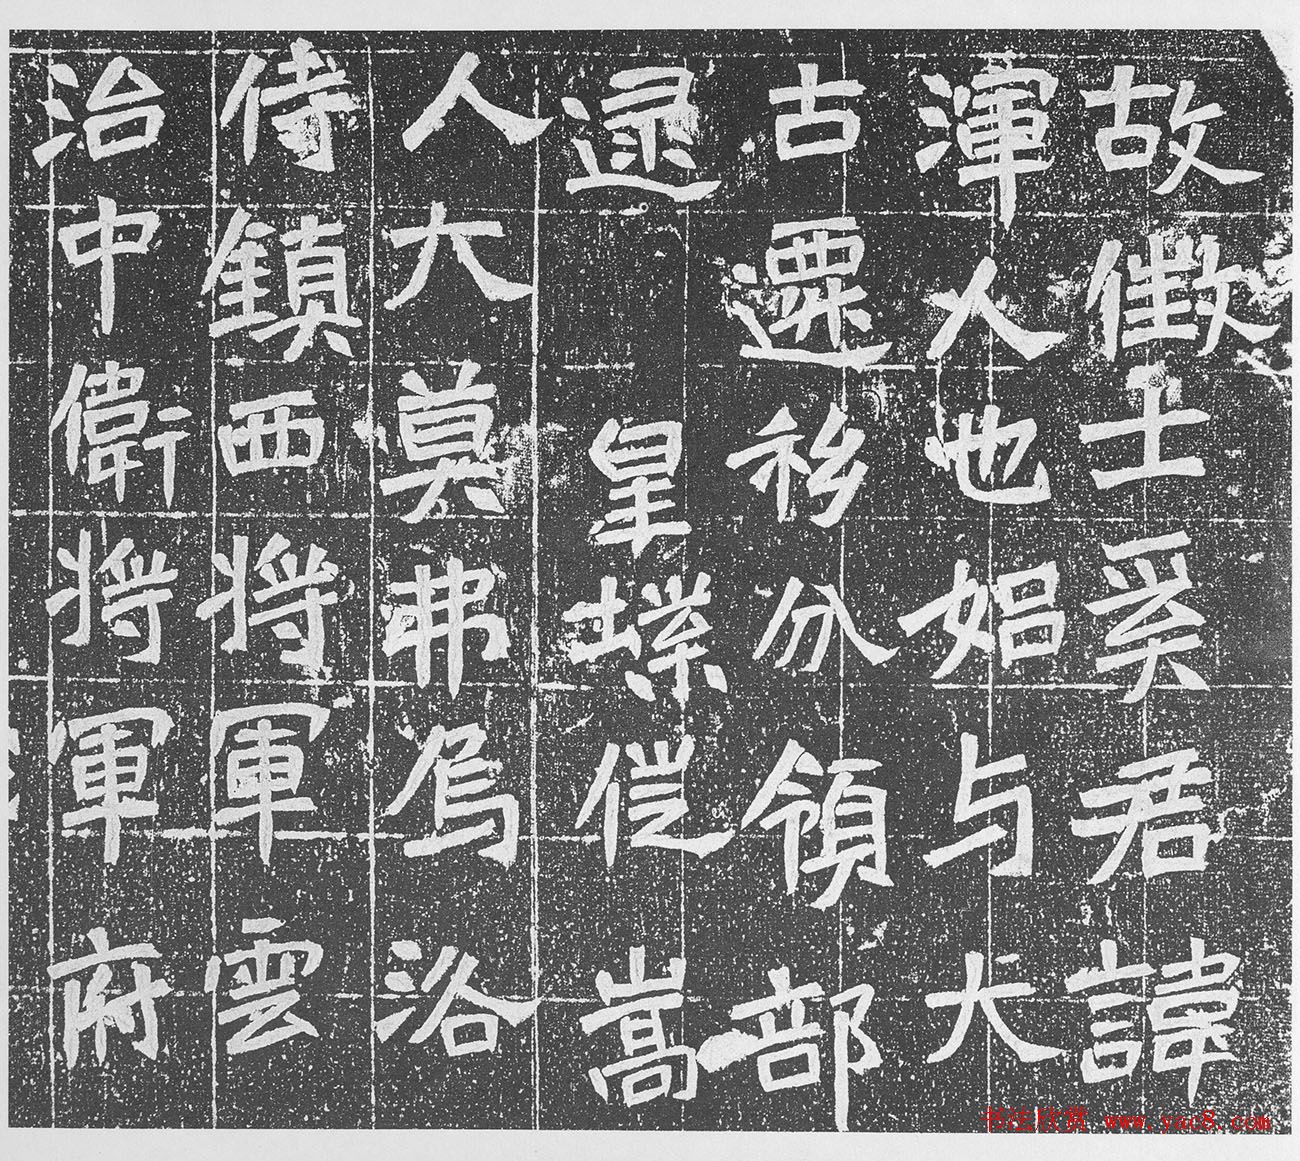 故徵士奚君諱
渾人也始与大
古遷移分領部
逮 皇業徙嵩
人大莫弗烏洛
侍鎮西將軍雲
治中衛將軍府
书法欣赏 www.yac8.com